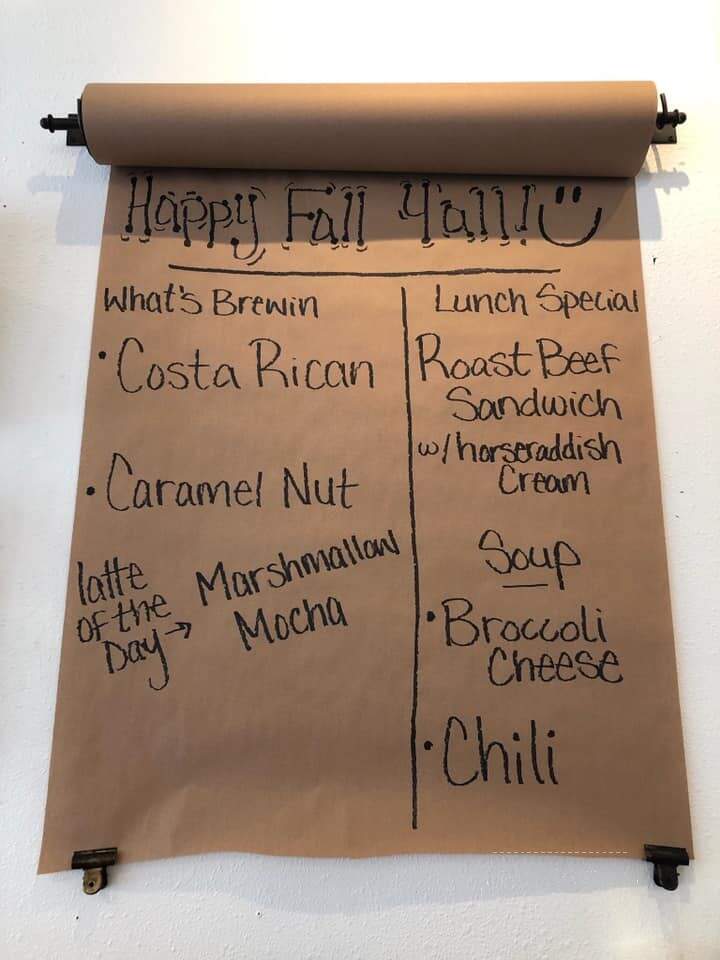 Happy Fall Y'all!
What's Brewin
• Costa Rican
• Caramel Nut
latte
of the
Day →
Marshmallow
Mocha
Lunch Special
Roast Beef
Sandwich
w/ horseraddish
Cream
Soup
• Broccoli
Cheese
• Chili